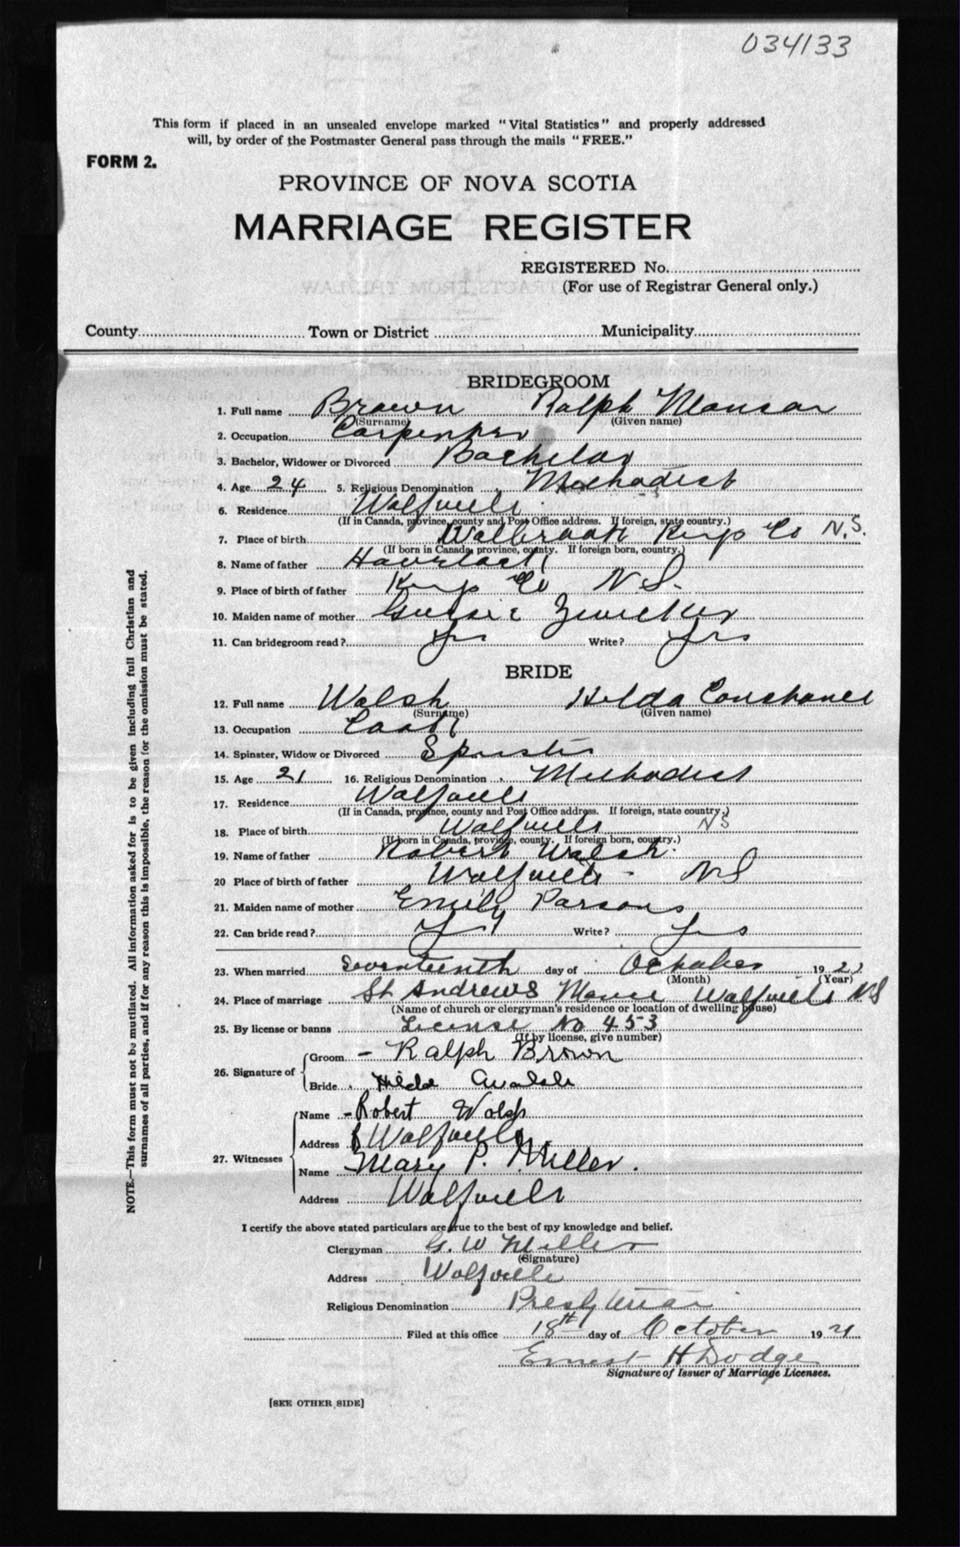 034133
This form if placed in an unsealed envelope marked "Vital Statistics" and properly addressed
will, by order of the Postmaster General pass through the mails "FREE."
FORM 2.
PROVINCE OF NOVA SCOTIA
MARRIAGE REGISTER
REGISTERED No.
(For use of Registrar General only.)
County Town or District Municipality
BRIDEGROOM
1. Full name Brown Ralph
(Surname) (Given name)
2. Occupation Carpenter
3. Bachelor, Widower or Divorced Bachelor
4. Age 24 5. Religious Denomination Methodist
6. Residence Wolfville
(If in Canada, province, county and Post Office address. If foreign, state country.)
7. Place of birth Walbrook Kings Co N.S.
(If born in Canada, province, county. If foreign born, country.)
8. Name of father Havelock
9. Place of birth of father Kings Co N S.
10. Maiden name of mother Zwicker
11. Can bridegroom read? Yes Write? Yes
BRIDE
12. Full name Walsh Hilda Constance
(Surname) (Given name)
13. Occupation Cook
14. Spinster, Widow or Divorced Spinster
15. Age 21 16. Religious Denomination Methodist
17. Residence Wolfville
(If in Canada, province, county and Post Office address. If foreign, state country.)
18. Place of birth Wolfville NS
(If born in Canada, province, county. If foreign born, country.)
19. Name of father Robert Walsh
20 Place of birth of father Wolfville - NS
21. Maiden name of mother Emily Parsons
22. Can bride read? Yes Write? Yes
23. When married Seventeenth day of October 192
(Month) (Year)
24. Place of marriage St Andrews Manse Wolfville NS
(Name of church or clergyman's residence or location of dwelling house)
25. By license or banns License No 453
(If by license, give number)
26. Signature of
Groom - Ralph Brown
Bride Hilda Walsh
27. Witnesses
Name - Robert Walsh
Address Wolfville
Name Mary P. Miller.
Address Wolfville
I certify the above stated particulars are true to the best of my knowledge and belief.
Clergyman G. W Miller
(Signature)
Address Wolfville
Religious Denomination Presbyterian
Filed at this office 18th day of October 1921
Ernest H Dodge
Signature of Issuer of Marriage Licenses.
[SEE OTHER SIDE]
NOTE.—This form must not be mutilated. All information asked for is to be given including full Christian and
surnames of all parties, and if for any reason this is impossible, the reason for the omission must be stated.